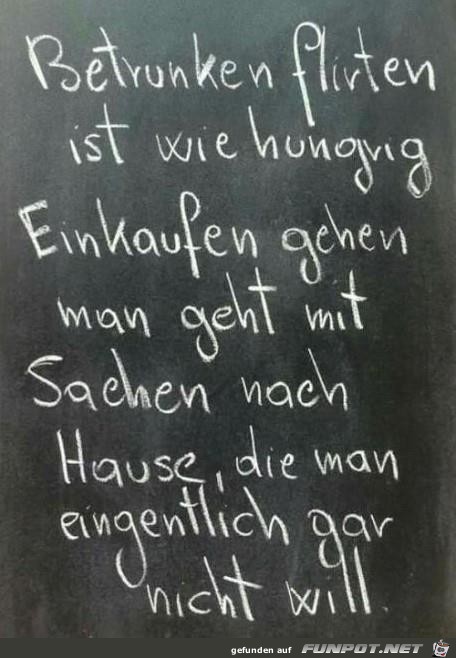 Betrunken flirten
ist wie hungrig
Einkaufen gehen
man geht mit
Sachen nach
Hause, die man
eingentlich gar
nicht will.
gefunden auf FUNPOT.NET